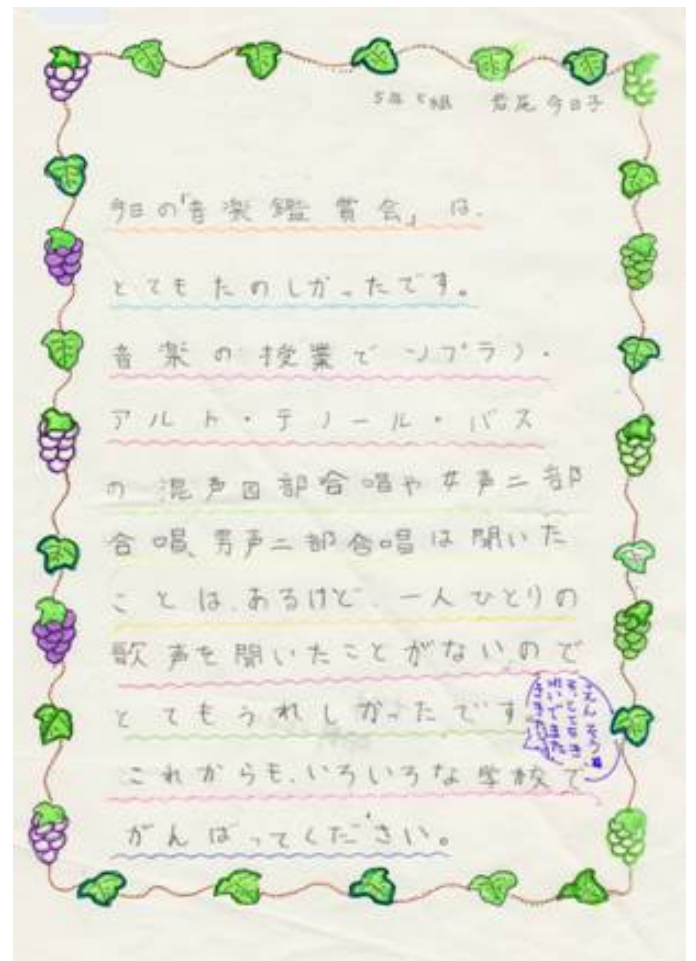 5年5組 岩尾今日子
今日の「音楽鑑賞会」は、
とてもたのしかったです。
音楽の授業でソプラノ・
アルト・テノール・バス
の混声四部合唱や女声二部
合唱、男声二部合唱は聞いた
ことは、あるけど、一人ひとりの
歌声を聞いたことがないので
とてもうれしかったです
これからも、いろいろな学校で
がんばってください。